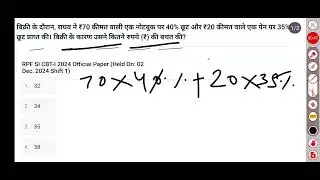 बिक्री के दौरान, राघव ने ₹70 कीमत वाली एक नोटबुक पर 40% छूट और ₹20 कीमत वाले एक पेन पर 35%
छूट प्राप्त की। बिक्री के कारण उसने कितने रुपये (₹) की बचत की?
1/2
RPF SI CBT-I 2024 Official Paper (Held On: 02
Dec. 2024 Shift 1)
70 x 40 % + 20 x 35%
1. 32
2. 34
3. 35
4. 38